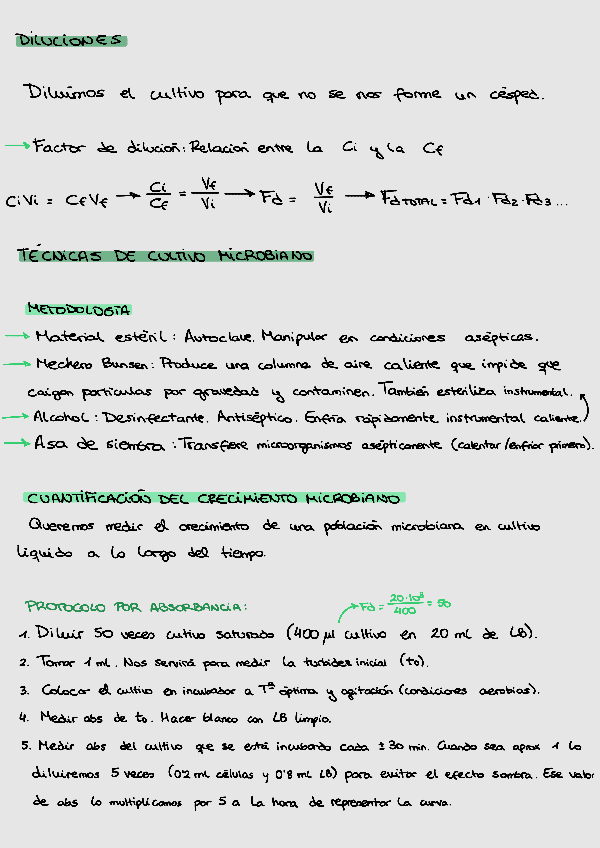 DILUCIONES
Diluimos el cultivo para que no se nos forme un césped.
→ Factor de dilución: Relación entre la Ci y la Cf
CiVi = CfVf → Ci/Cf = Vf/Vi → Fd = Vf/Vi → Fd TOTAL = Fd1 · Fd2 · Fd3 ...
TÉCNICAS DE CULTIVO MICROBIANO
METODOLOGÍA
→ Material estéril: Autoclave. Manipular en condiciones asépticas.
→ Mechero Bunsen: Produce una columna de aire caliente que impide que
caigan partículas por gravedad y contaminen. También esteriliza instrumental.
→ Alcohol: Desinfectante. Antiséptico. Enfría rápidamente instrumental caliente.
→ Asa de siembra: Transfiere microorganismos asépticamente (calentar/enfriar primero).
CUANTIFICACIÓN DEL CRECIMIENTO MICROBIANO
Queremos medir el crecimiento de una población microbiana en cultivo
líquido a lo largo del tiempo.
PROTOCOLO POR ABSORBANCIA:
→ Fd = 20·10³/400 = 50
1. Diluir 50 veces cultivo saturado (400 µl cultivo en 20 mL de LB).
2. Tomar 1 mL. Nos servirá para medir la turbidez inicial (t0).
3. Colocar el cultivo en incubador a Tª óptima y agitación (condiciones aerobias).
4. Medir abs de t0. Hacer blanco con LB limpio.
5. Medir abs del cultivo que se está incubando cada ± 30 min. Cuando sea aprox 1 lo
diluiremos 5 veces (0'2 mL células y 0'8 mL LB) para evitar el efecto sombra. Ese valor
de abs lo multiplicamos por 5 a la hora de representar la curva.